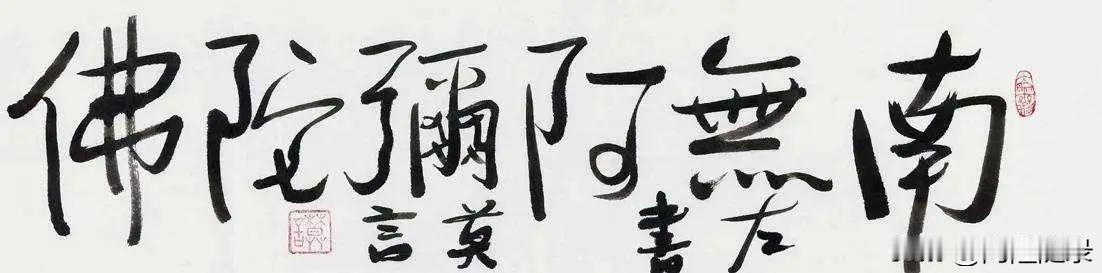 南無阿彌陀佛
左書
莫言